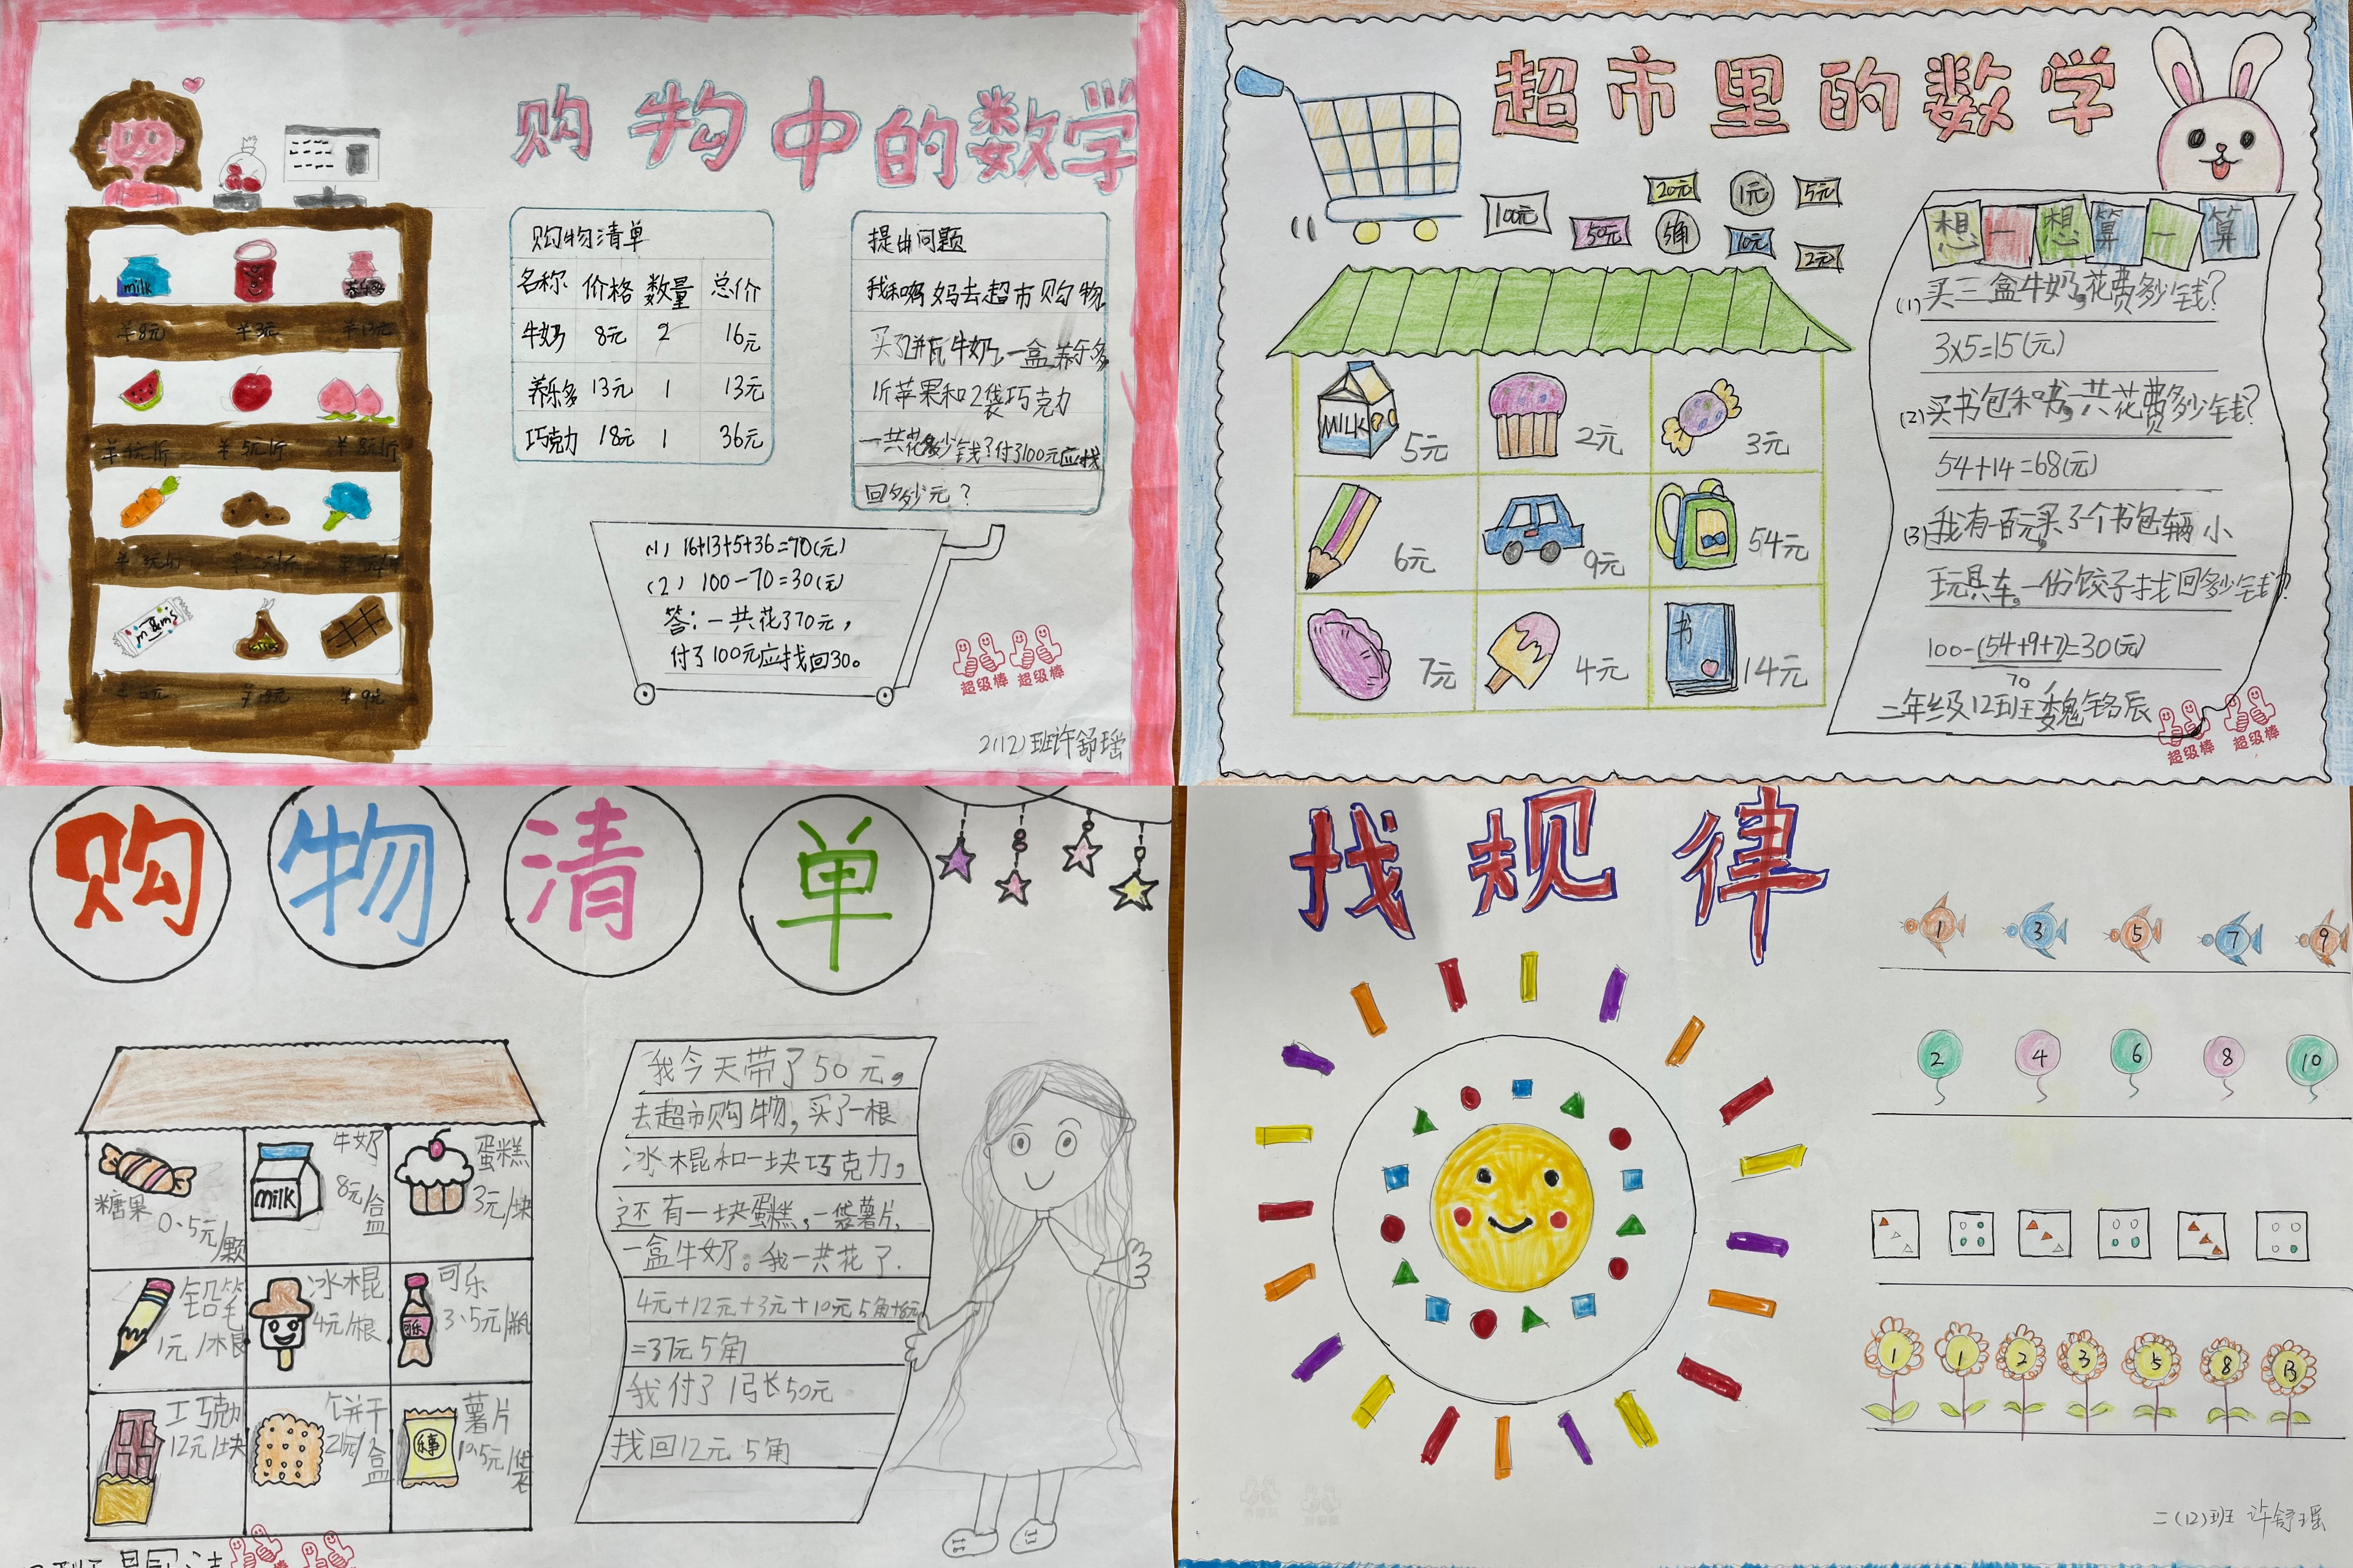 购物中的数学
milk
养乐多
￥8元 ￥3元 ￥13元
￥5元/斤 ￥8元/斤
购物清单
名称 价格 数量 总价
牛奶 8元 2 16元
养乐多 13元 1 13元
巧克力 18元 1 36元
提出问题
我和妈妈去超市购物
买了2瓶牛奶,一盒养乐多
1斤苹果和2袋巧克力
一共花多少钱?付了100元应找
回多少元?
(1) 16+13+5+36=70(元)
(2) 100-70=30(元)
答:一共花了70元,
付了100元应找回30。
超级棒 超级棒
2(12)班许舒瑶
超市里的数学
100元 50元 20元 5角 1元 10元 5元 2元
MILK 5元 2元 3元
6元 9元 54元
7元 4元 书 14元
想一想算一算
(1)买三盒牛奶,花费多少钱?
3×5=15(元)
(2)买书包和书,一共花费多少钱?
54+14=68(元)
(3)我有一百元,买了个书包辆小
玩具车。一份饺子找回多少钱?
100-(54+9+7)=30(元)
70
二年级12班 魏铭辰
超级棒 超级棒
购物清单
糖果 0.5元/颗
milk 牛奶 8元/盒
蛋糕 3元/块
铅笔 1元/根
冰棍 4元/根
可乐 可乐 3.5元/瓶
巧克力 12元/块
饼干
薯片 10.5元/袋
我今天带了50元。
去超市购物,买了一根
冰棍和一块巧克力,
还有一块蛋糕,一袋薯片,
一盒牛奶。我一共花了.
4元+12元+3元+10元5角+8元
=37元5角
我付了1张50元
找回12元5角
找规律
1 3 5 7 9
2 4 6 8 10
1 1 2 3 5 8 13
二(12)班 许舒瑶